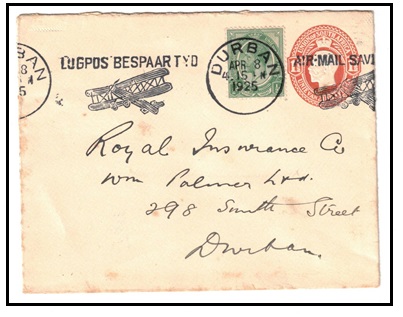 DURBAN
8
5
LUGPOS BESPAAR TYD
DURBAN
APR 8
4.15
1925
AIR-MAIL SAV
Royal Insurance Co
Wm Palmer Ltd.
298 Smith Street
Durban.